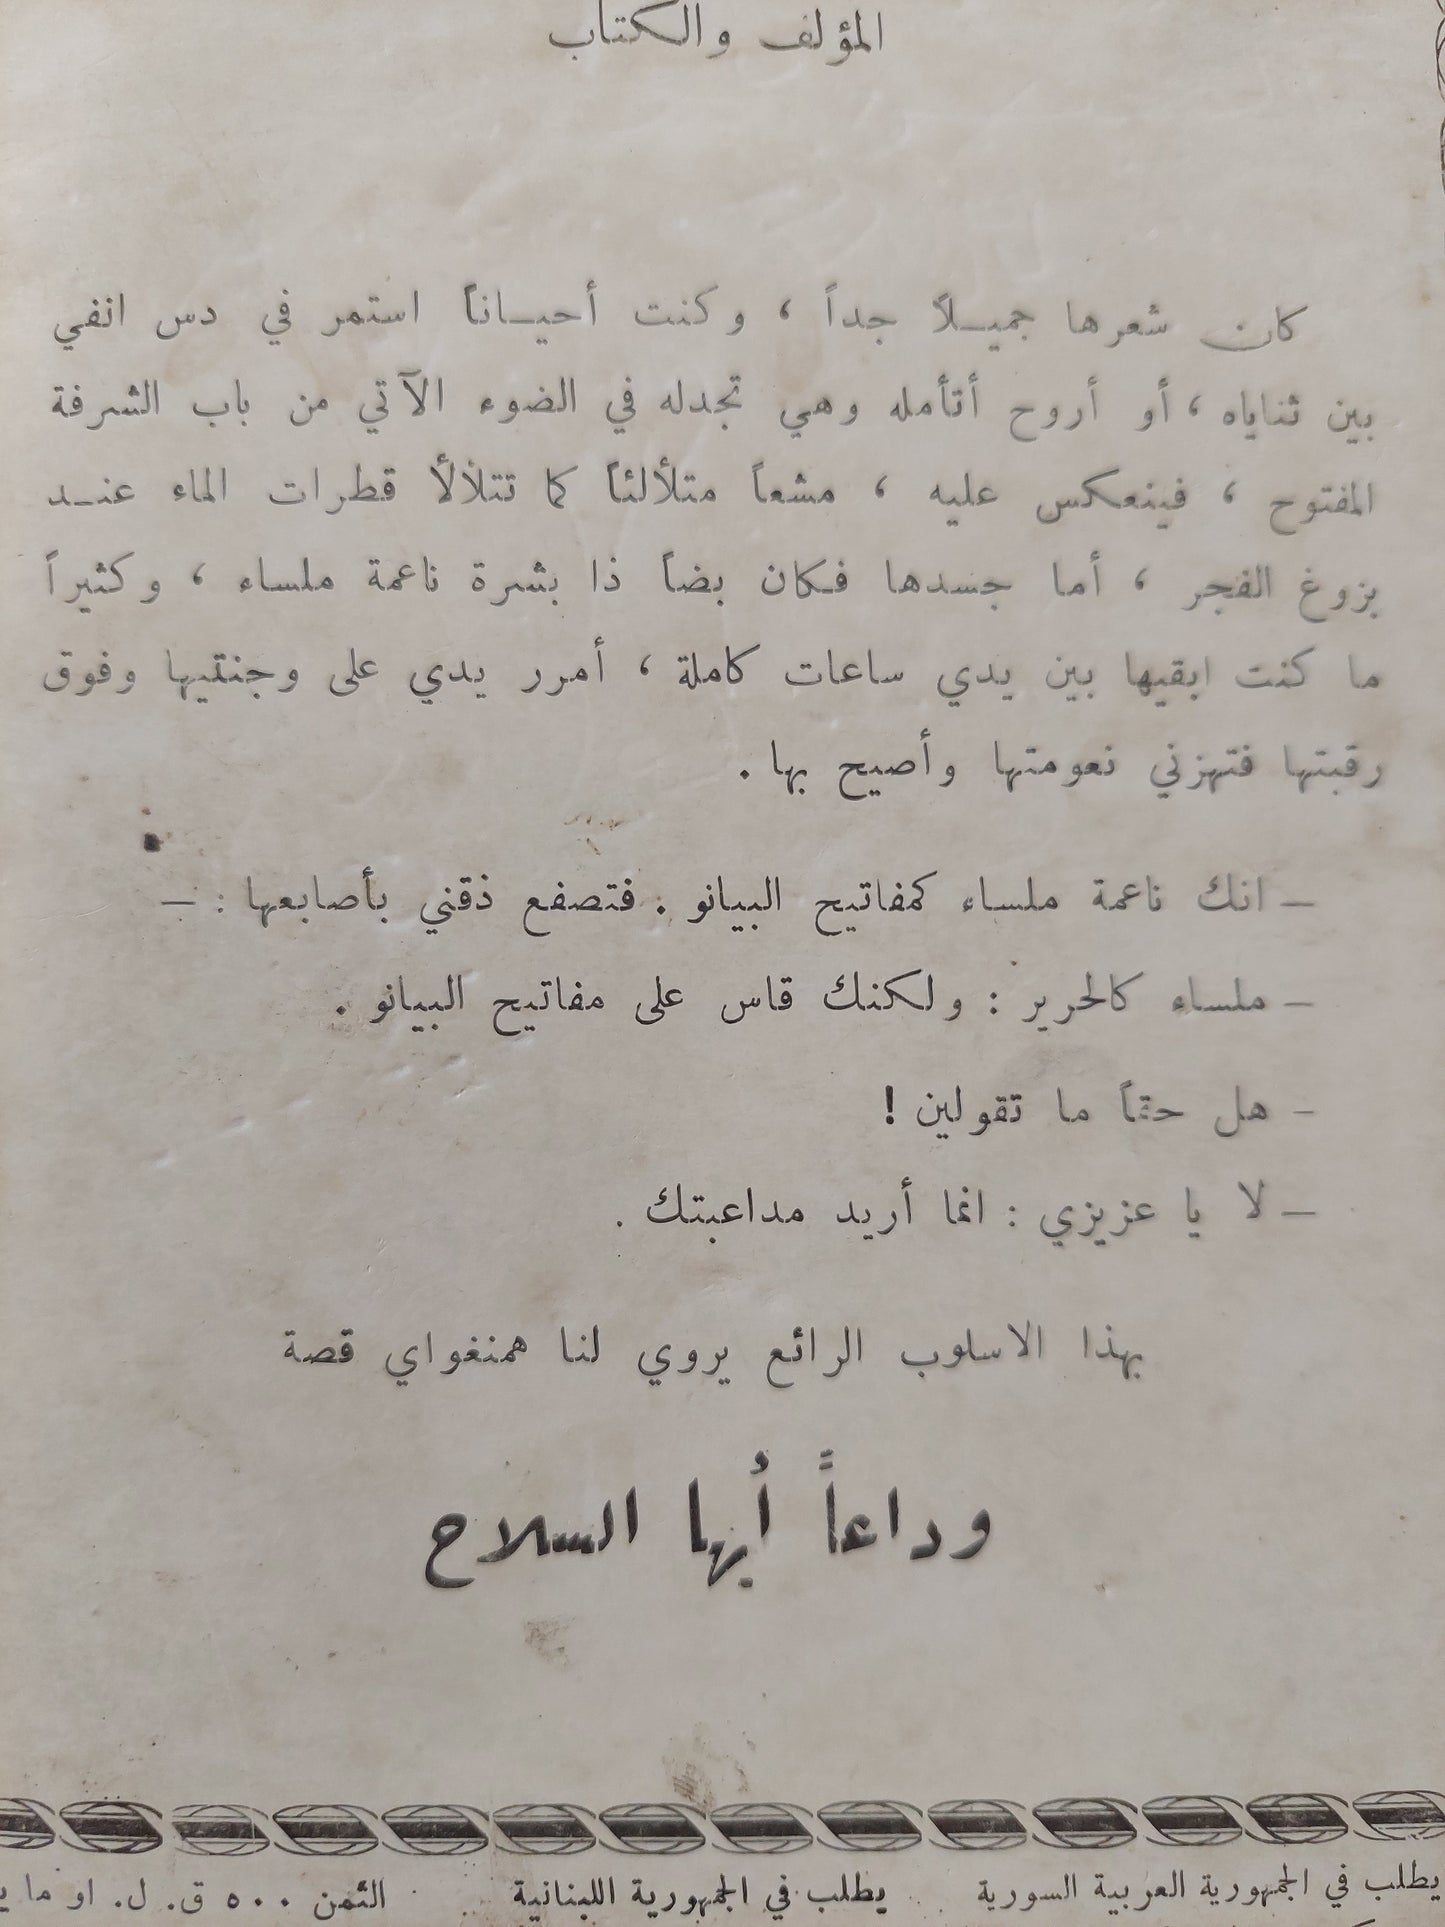 المؤلف والكتاب
كان شعرها جميلاً جداً ، وكنت أحياناً استمر في دس انفي
بين ثناياه ، أو أروح أتأمله وهي تجدله في الضوء الآتي من باب الشرفة
المفتوح ، فينعكس عليه ، مشعاً متلألئاً كما تتلألأ قطرات الماء عند
بزوغ الفجر ، أما جسدها فكان بضاً ذا بشرة ناعمة ملساء ، وكثيراً
ما كنت ابقيها بين يدي ساعات كاملة ، أمرر يدي على وجنتيها وفوق
رقبتها فتهزني نعومتها وأصيح بها .
– انك ناعمة ملساء كمفاتيح البيانو . فتصفع ذقني بأصابعها : –
– ملساء كالحرير : ولكنك قاس على مفاتيح البيانو .
– هل حقاً ما تقولين !
– لا يا عزيزي : انما أريد مداعبتك .
بهذا الاسلوب الرائع يروي لنا همنغواي قصة
وداعاً أيها السلاح
يطلب في الجمهورية العربية السورية
يطلب في الجمهورية اللبنانية
الثمن ٥٠٠ ق. ل. او ما